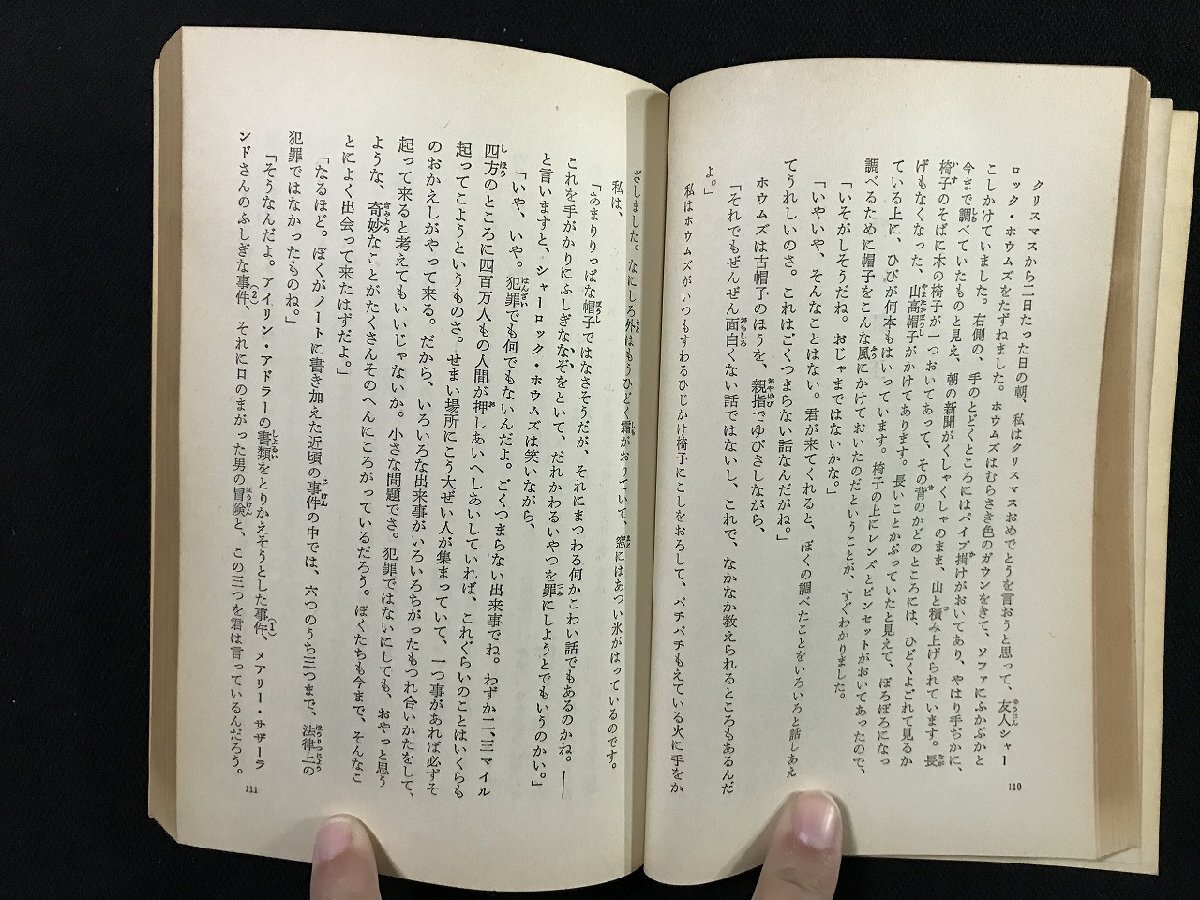 クリスマスから二日たった日の朝、私はクリスマスおめでとうを言おうと思って、友人シャー
ロック・ホウムズをたずねました。ホウムズはむらさき色のガウンをきて、ソファにふかぶかと
こしかけていました。右側の、手のとどくところにはパイプ掛けがおいてあり、やはり手ぢかに、
今まで調べていたものと見え、朝の新聞がくしゃくしゃのまま、山と積み上げられています。長
椅子のそばに木の椅子が一つおいてあって、その背のかどのところには、ひどくよごれて見るか
げもなくなった、山高帽子がかけてあります。長いことかぶっていたと見えて、ぼろぼろになっ
ている上に、ひびが何本もはいっています。椅子の上にレンズとピンセットがおいてあったので、
調べるために帽子をこんな風にかけておいたのだということが、すぐわかりました。
「いそがしそうだね。おじゃまではないかな。」
「いやいや、そんなことはない。君が来てくれると、ぼくの調べたことをいろいろと話しあえ
てうれしいのさ。これはごくつまらない話なんだがね。」
ホウムズは古帽子のほうを、親指でゆびさしながら、
「それでもぜんぜん面白くない話ではないし、これで、なかなか教えられるところもあるんだ
よ。」
私はホウムズがいつもすわるひじかけ椅子にこしをおろして、パチパチもえている火に手をか
110
ざしました。なにしろ外はもうひどく霜がおりていて、窓にはあつい氷がはっているのです。
私は、
「あまりりっぱな帽子ではなさそうだが、それにまつわる何かこわい話でもあるのかね。――
これを手がかりにふしぎななぞをといて、だれかわるいやつを罪にしようとでもいうのかい。」
と言いますと、シャーロック・ホウムズは笑いながら、
「いや、いや。犯罪でも何でもないんだよ。ごくつまらない出来事でね。わずか二、三マイル
四方のところに四百万人もの人間が押しあいへしあいしていれば、これぐらいのことはいくらも
起ってこようというものさ。せまい場所にこう大ぜい人が集まっていて、一つ事があれば必ずそ
のおかえしがやって来る。だから、いろいろな出来事がいろいろちがったもつれ合いかたをして、
起って来ると考えてもいいじゃないか。小さな問題でさ。犯罪ではないにしても、おやっと思う
ような、奇妙なことがたくさんそのへんにころがっているだろう。ぼくたちも今まで、そんなこ
とによく出会って来たはずだよ。」
「なるほど。ぼくがノートに書き加えた近頃の事件の中では、六つのうち三つまで、法律上の
犯罪ではなかったものね。」
「そうなんだよ。アイリン・アドラーの書類をとりかえそうとした事件、(1)メアリー・サザーラ
ンドさんのふしぎな事件、(2)それに口のまがった男の冒険と、この三つを君は言っているんだろう。
111